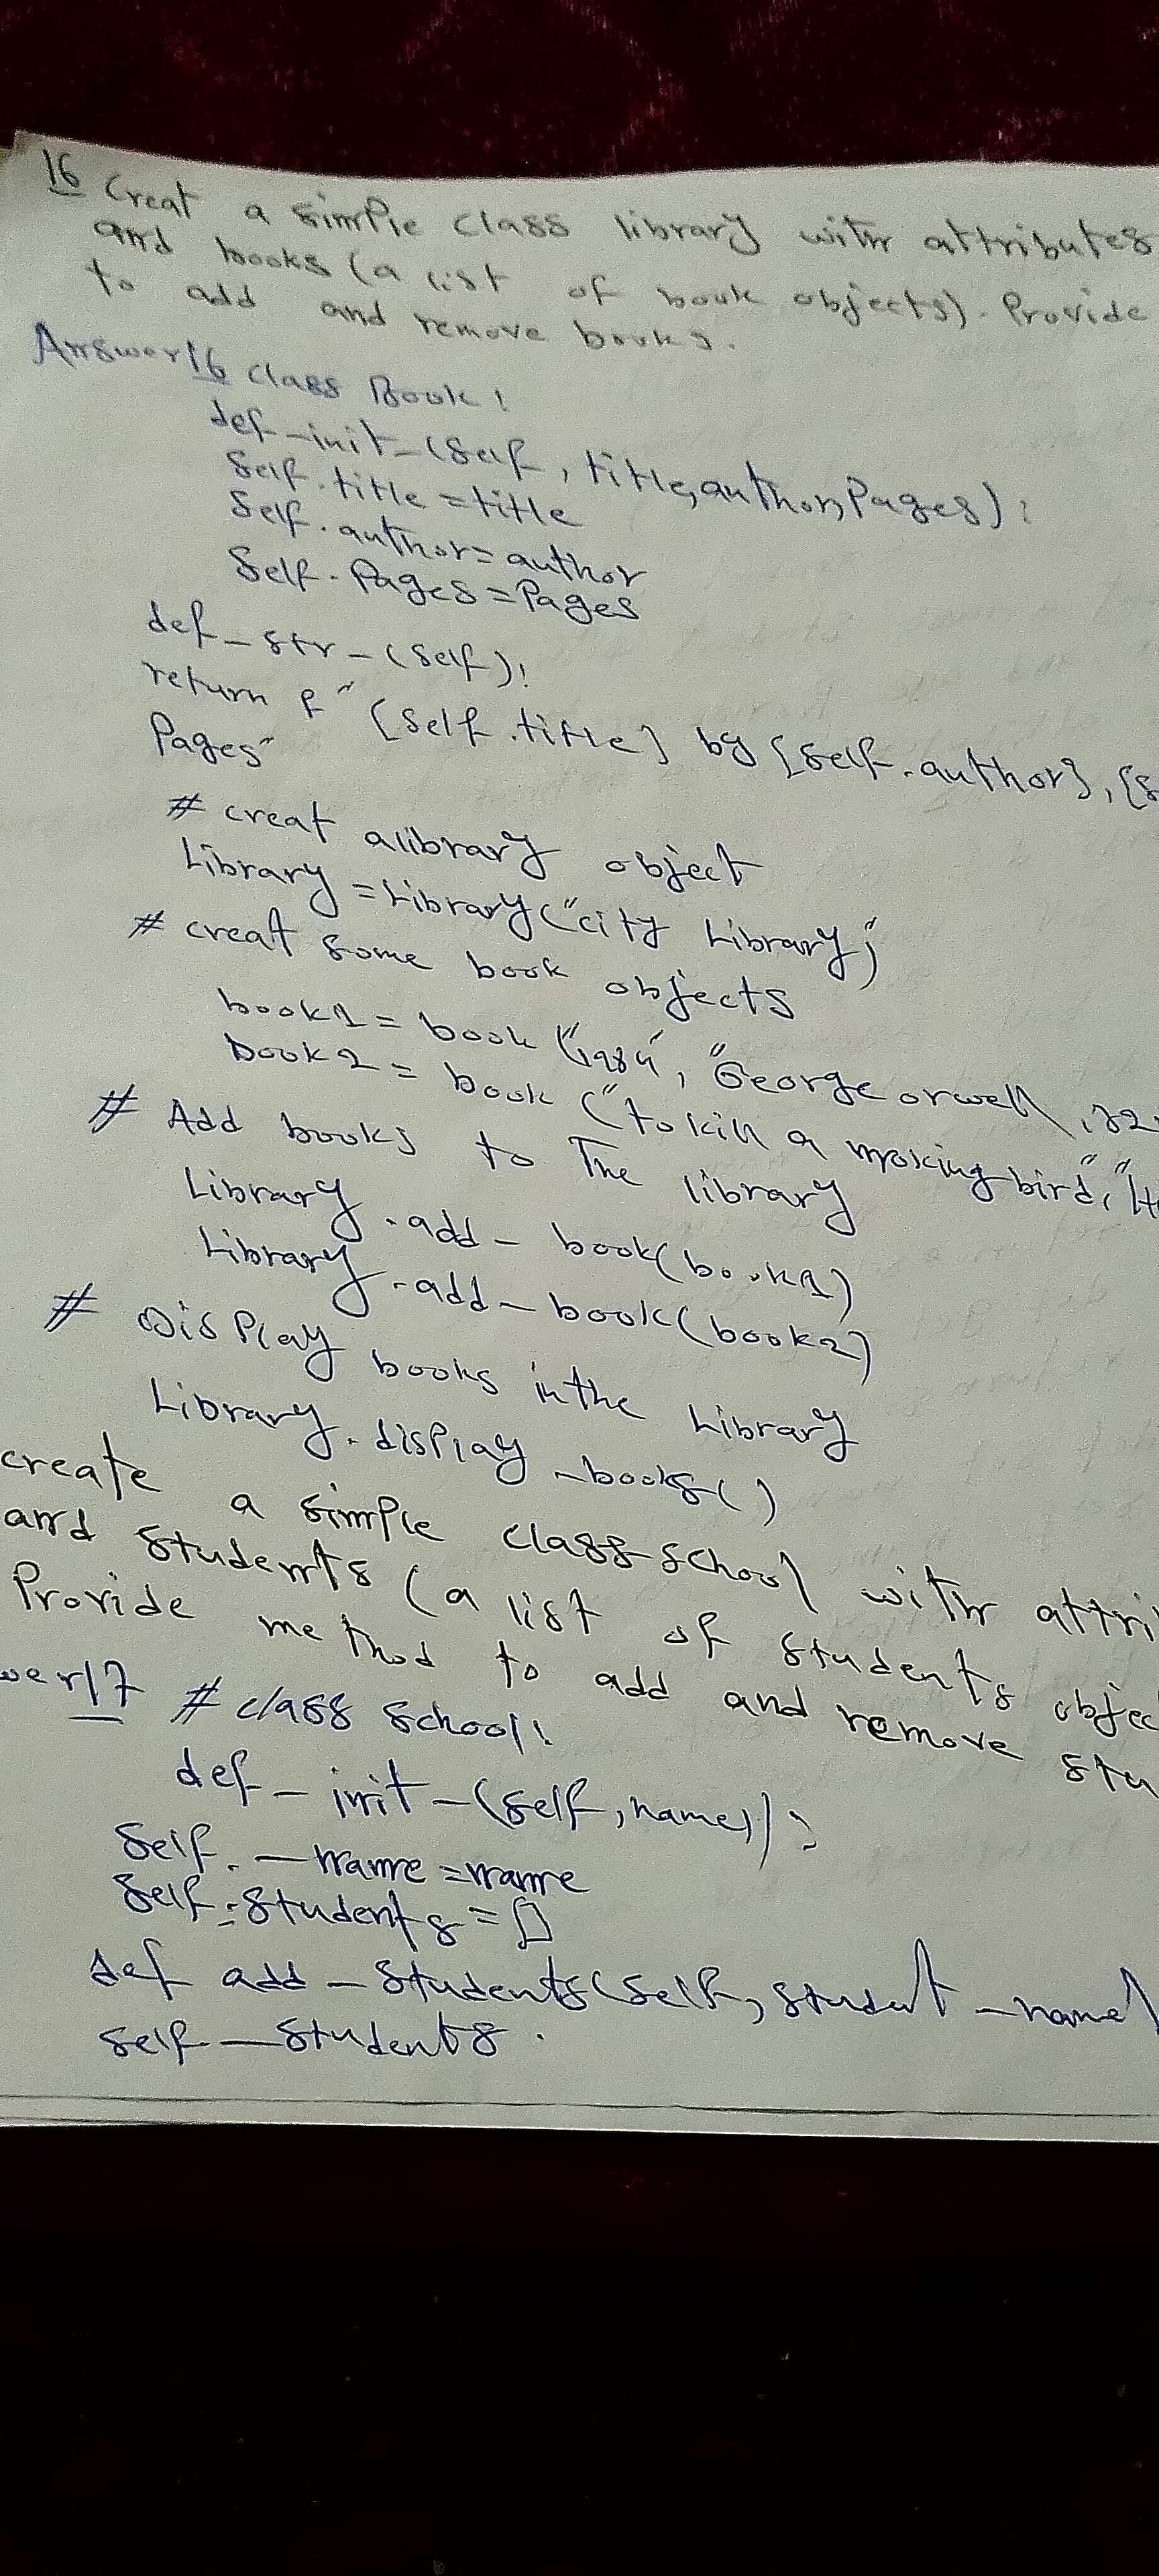 16 Creat a simple class library with attributes
and books (a list of book objects). Provide
to add and remove books.
Answer16 class Book:
def_init_(self, title,author,Pages):
Self.title=title
Self.author=author
Self.Pages=Pages
def_str_(self):
return f" {Self.title} by {self.author}, {s
Pages"
# creat alibrary object
Library=Library("city Library")
# creat some book objects
book1= book ("1984", "George orwell ,
book2= book ("to kill a mokingbird",
# Add books to The library
Library.add_book(book1)
Library.add_book(book2)
# Display books inthe Library
Library.display_books()
create a simple class school with attri
and students (a list of students objec
Provide method to add and remove stu
wer17 # class School:
def_init_(self,name)):
Self._name=name
Self.students=[]
def add_students(self, student_name)
self_students.